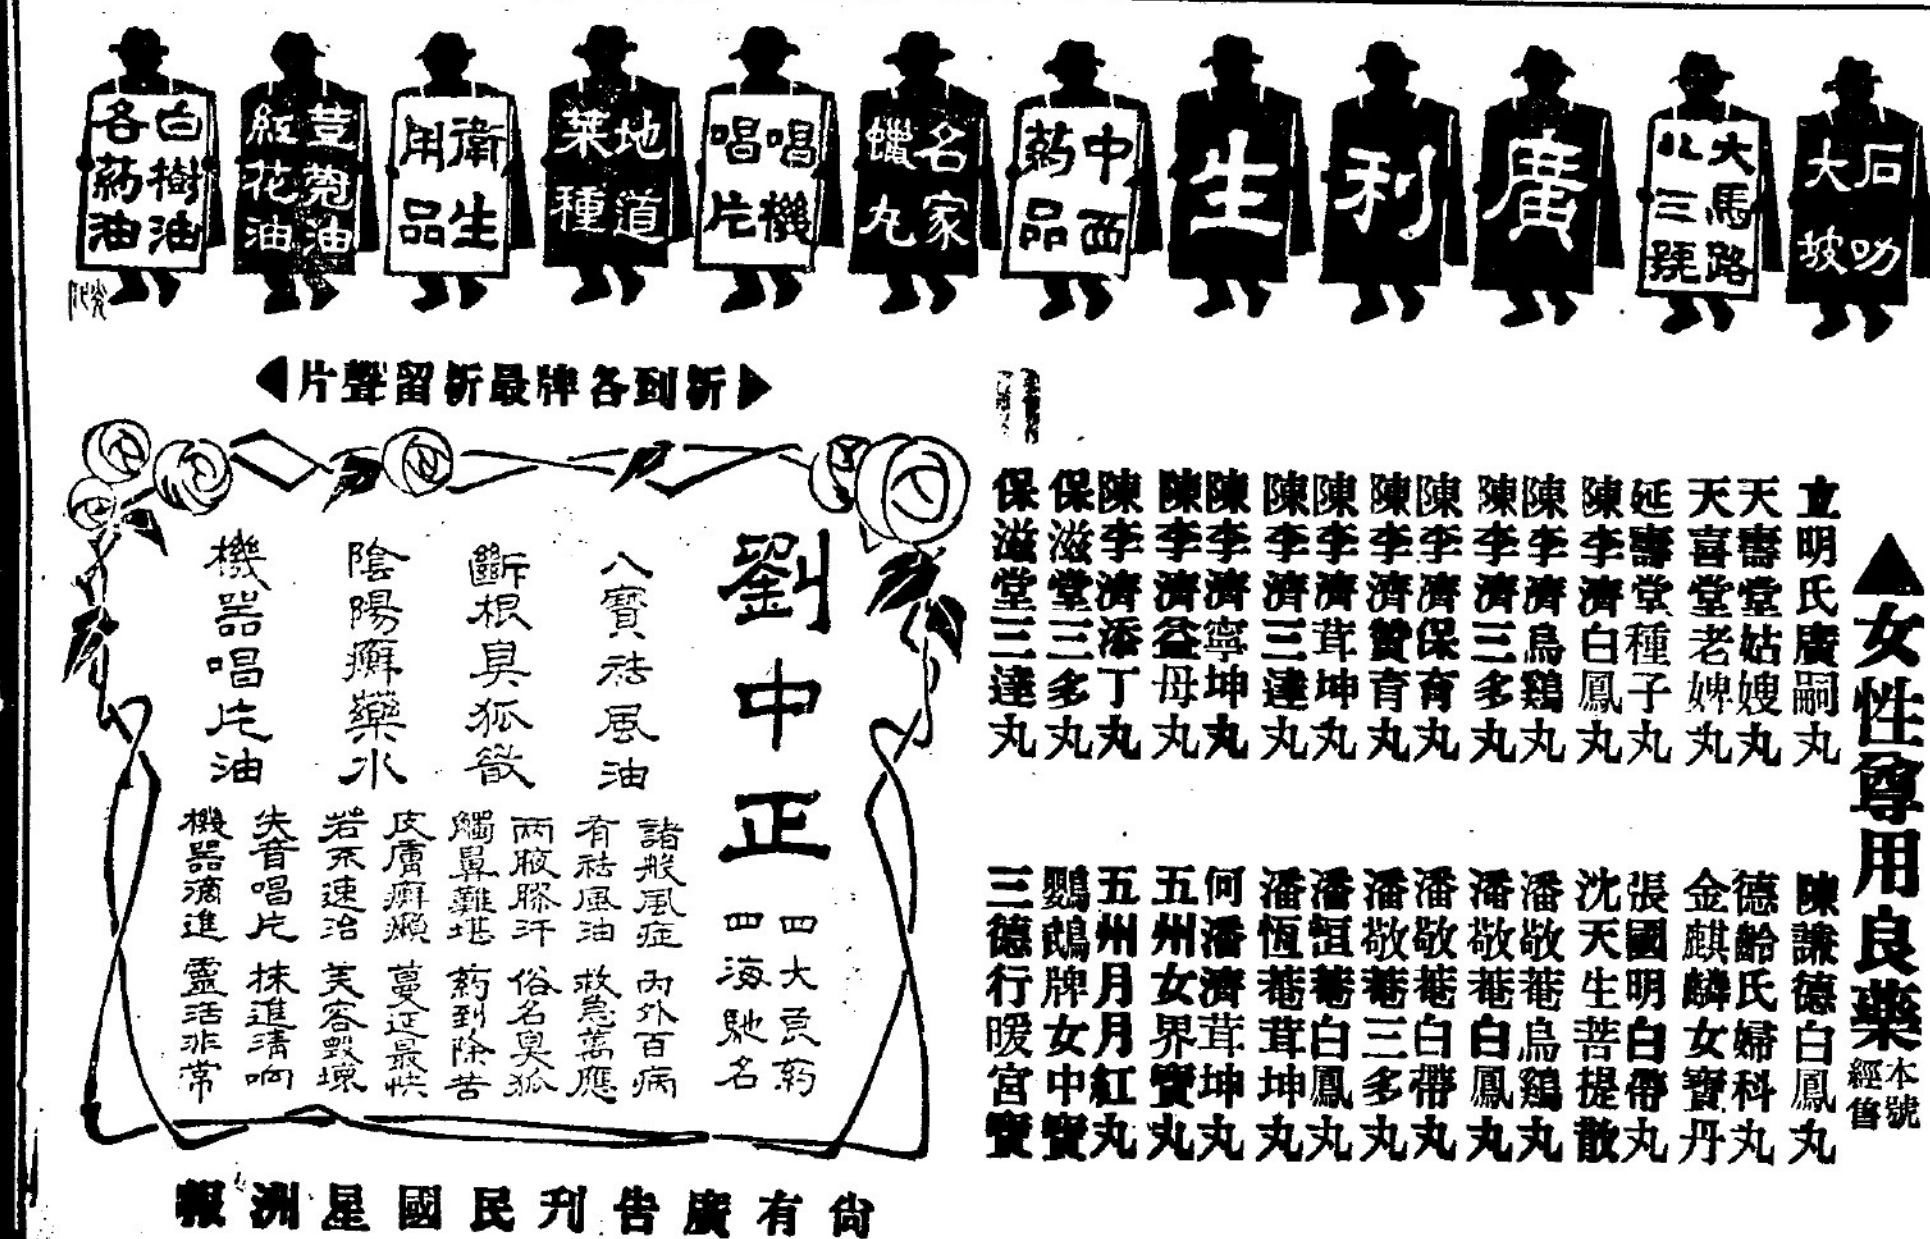 石叻
大坡
大馬路
八三號
廣
利
生
中西
葯品
名家
蠟丸
唱機
唱片
地道
菜種
衛生
用品
荳蔻油
紅花油
白樹油
各葯油
▲女性尊用良藥
本號
經售
立明氏廣嗣丸
天壽堂姑嫂丸
天喜堂老婢丸
延壽堂種子丸
陳李濟白鳳丸
陳李濟烏鷄丸
陳李濟三多丸
陳李濟保育丸
陳李濟贊育丸
陳李濟茸坤丸
陳李濟三達丸
陳李濟寧坤丸
陳李濟益母丸
陳李濟添丁丸
保滋堂三多丸
保滋堂三達丸
陳謙德白鳳丸
德齡氏婦科丸
金麒麟女寶丹
張國明白帶丸
沈天生菩提散
潘敬菴烏鷄丸
潘敬菴白鳳丸
潘敬菴白帶丸
潘敬菴三多丸
潘恒菴白鳳丸
潘恆菴茸坤丸
何潘濟茸坤丸
五州女界寶丸
五州月月紅丸
鸚鵡牌女中寶
三德行暖宮寶
新到各牌最新留聲片
劉中正
四大良葯
四海馳名
八寶祛風油
諸般風症 內外百病
有祛風油 救急萬應
斷根臭狐散
兩腋膠汗 俗名臭狐
觸鼻難堪 葯到除苦
陰陽癬藥水
皮膚癬癩 蔓延最快
若不速治 美容毀壞
機器唱片油
失音唱片 抹進清响
機器滴進 靈活非常
尙有廣告刋民國星洲報